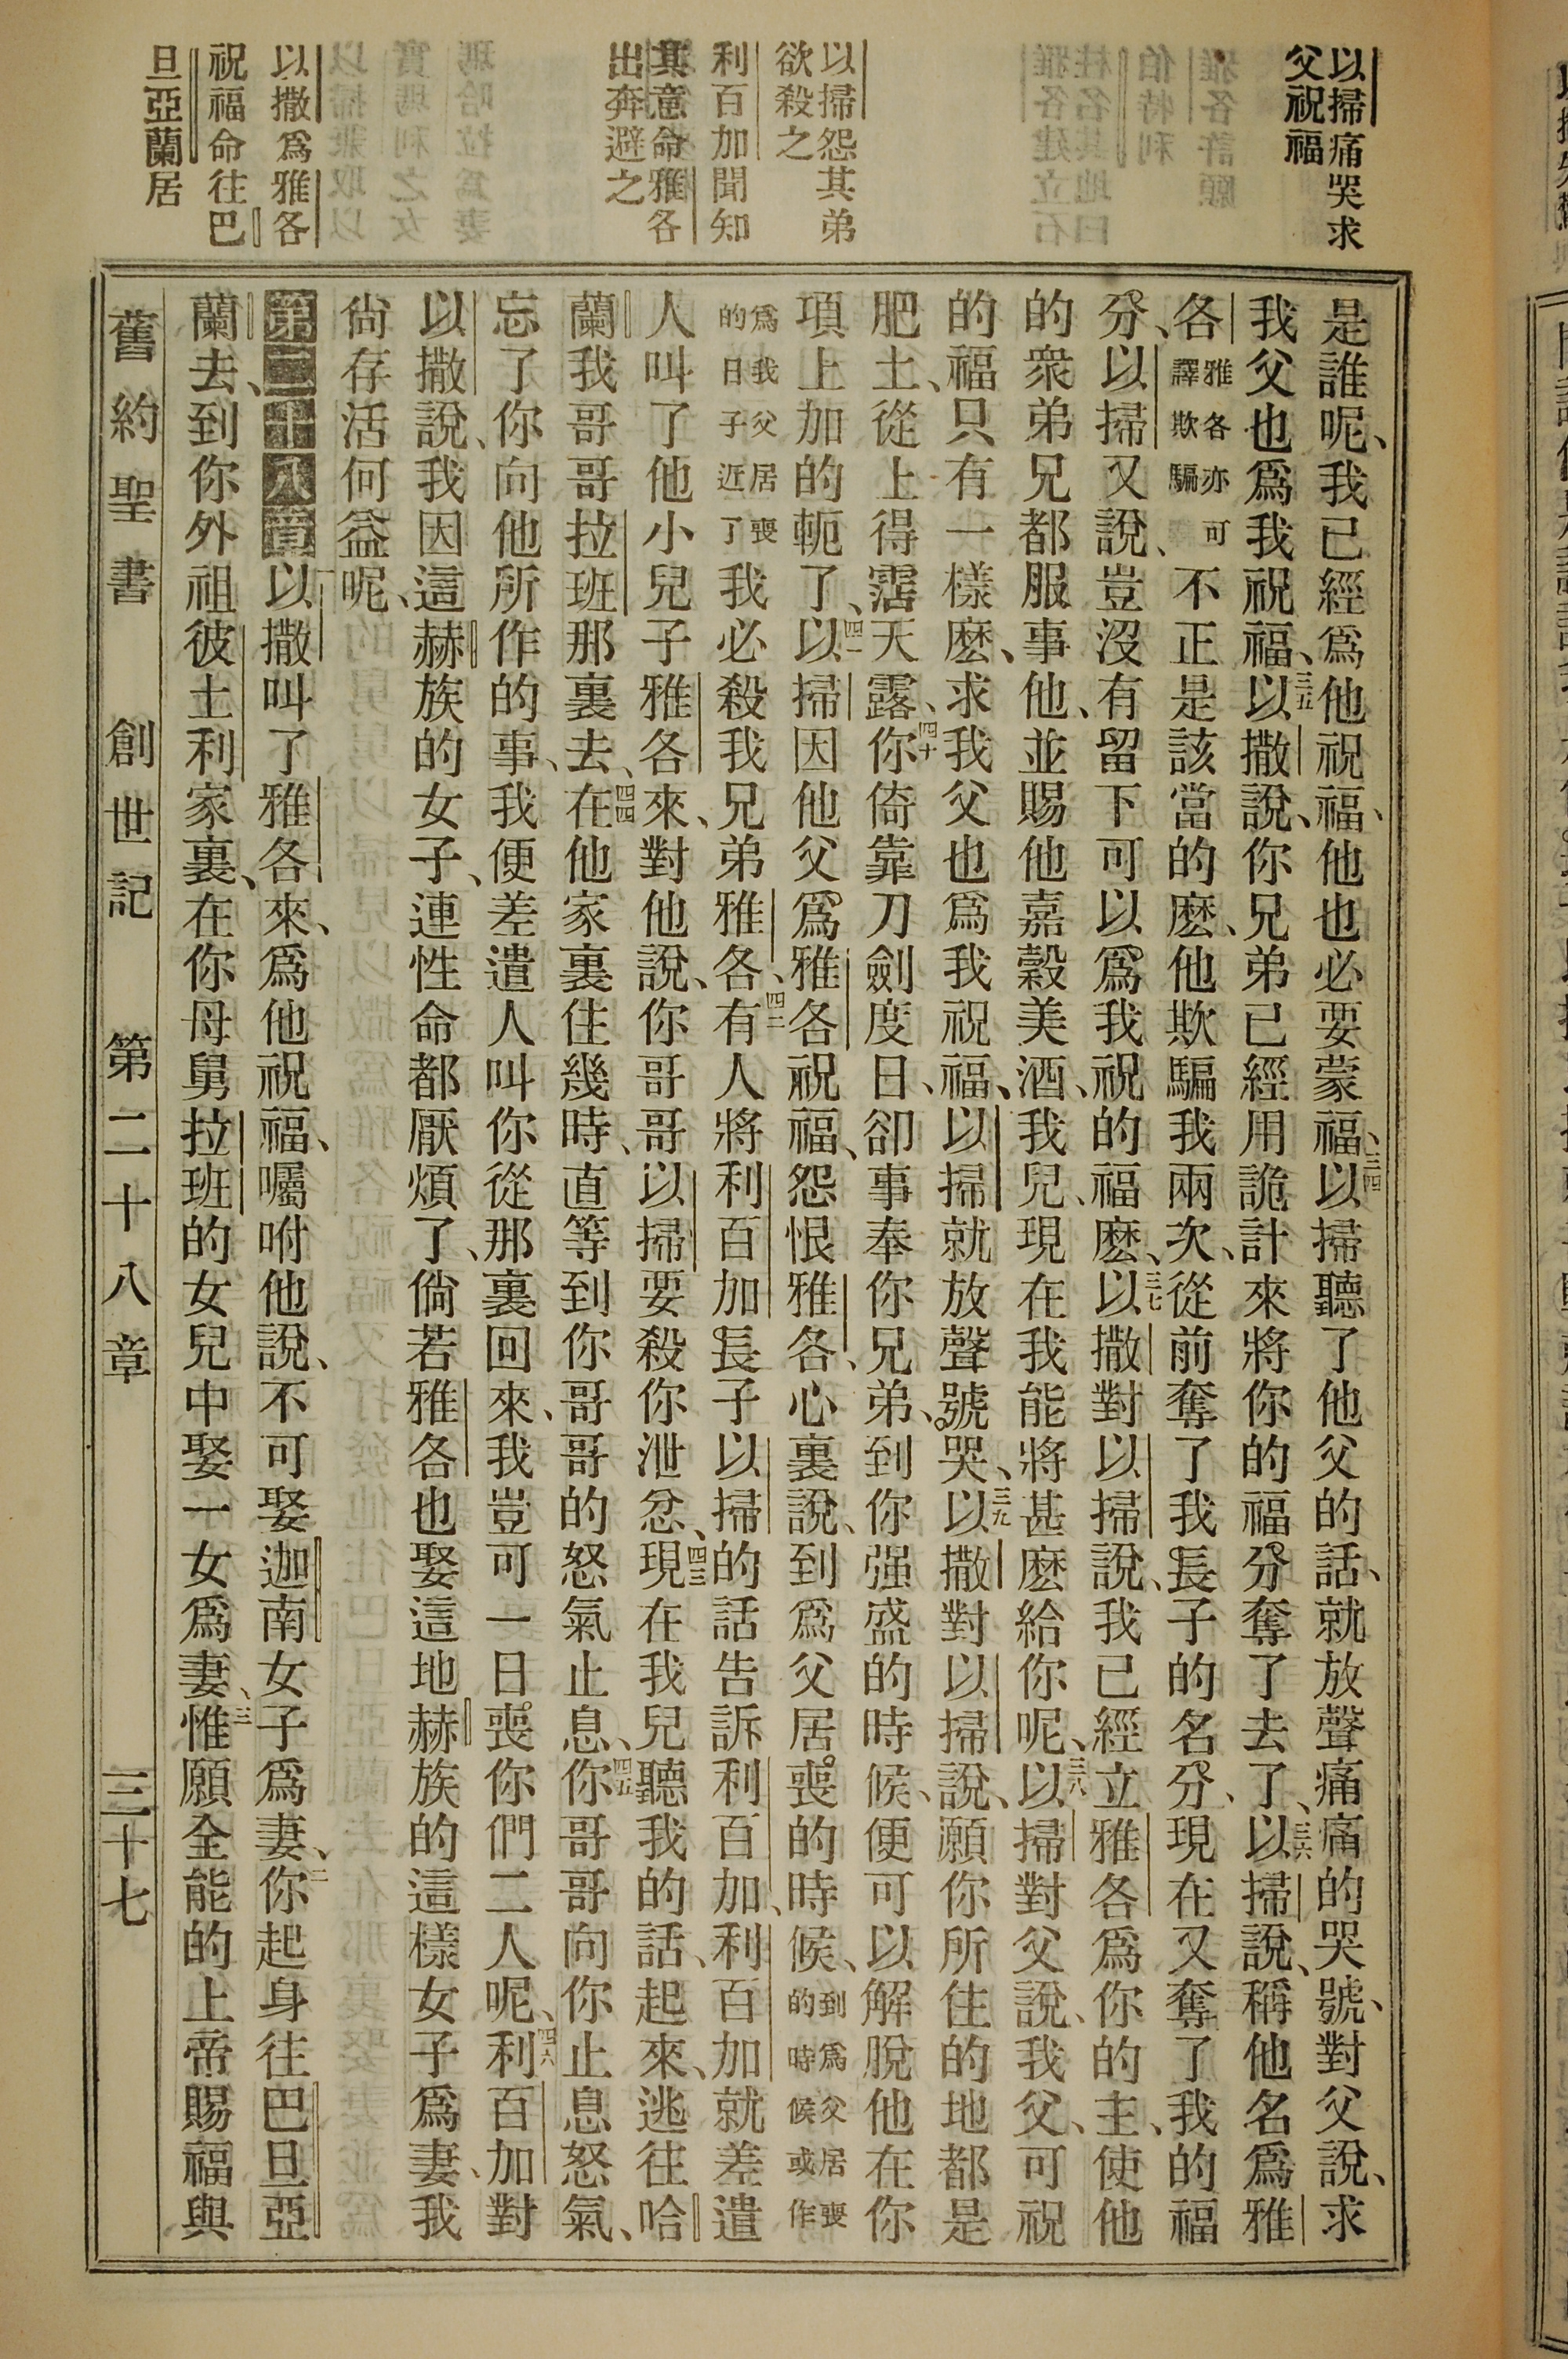 以掃痛哭求
父祝福
以掃怨其弟
欲殺之
利百加聞知
其意命雅各
出奔避之
以撒爲雅各
祝福命往巴
旦亞蘭居
是誰呢、我已經爲他祝福、他也必要蒙福、三四以掃聽了他父的話、就放聲痛痛的哭號、對父說、求
我父也爲我祝福、三五以撒說、你兄弟已經用詭計來將你的福分奪了去了、三六以掃說、稱他名爲雅
各雅各亦可譯欺騙不正是該當的麽、他欺騙我兩次、從前奪了我長子的名分、現在又奪了我的福
分、以掃又說、豈沒有留下可以爲我祝的福麽、三七以撒對以掃說、我已經立雅各爲你的主、使他
的衆弟兄都服事他、並賜他嘉穀美酒、我兒、現在我能將甚麽給你呢、三八以掃對父說、我父、可祝
的福只有一樣麽、求我父也爲我祝福、以掃就放聲號哭、三九以撒對以掃說、願你所住的地都是
肥土、從上得霑天露、四十你倚靠刀劍度日、卻事奉你兄弟、到你强盛的時候、便可以解脫他在你
項上加的軛了、四一以掃因他父爲雅各祝福、怨恨雅各、心裏說、到爲父居喪的時候、到爲父居喪的時候或作
爲我父居喪的日子近了我必殺我兄弟雅各、四二有人將利百加長子以掃的話告訴利百加、利百加就差遣
人叫了他小兒子雅各來、對他說、你哥哥以掃要殺你泄忿、四三現在我兒聽我的話、起來、逃往哈
蘭我哥哥拉班那裏去、四四在他家裏住幾時、直等到你哥哥的怒氣止息、四五你哥哥向你止息怒氣、
忘了你向他所作的事、我便差遣人叫你從那裏回來、我豈可一日喪你們二人呢、四六利百加對
以撒說、我因這赫族的女子、連性命都厭煩了、倘若雅各也娶這地赫族的這樣女子爲妻、我
尙存活何益呢、
第二十八章以撒叫了雅各來、爲他祝福、囑咐他說、不可娶迦南女子爲妻、二你起身往巴旦亞
蘭去、到你外祖彼土利家裏、在你母舅拉班的女兒中娶一女爲妻、三惟願全能的上帝賜福與
舊約聖書 創世記 第二十八章 三十七